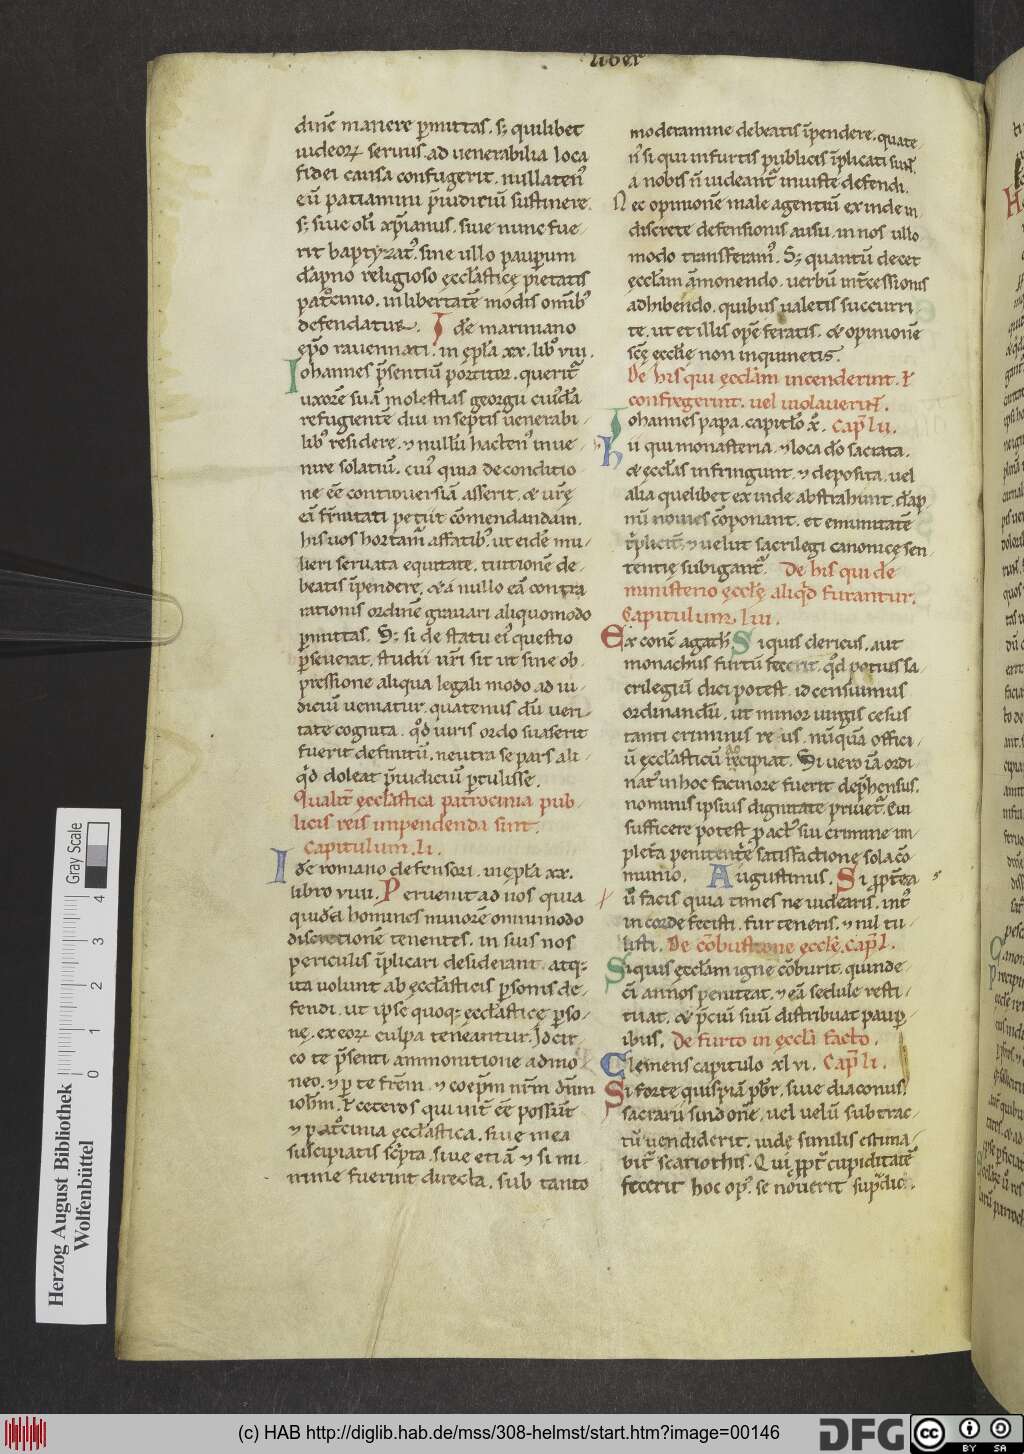 liber
dinē manere ꝑmittas. sꝫ quilibet
iudeoꝝ seruus ad uenerabilia loca
fidei causa confugerit. nullaten᾽
eū patiamini p̄iuditiū sustinere.
sꝫ siue oli͛ xp̄ianus. siue nunc fue
rit baptyzat᾽. sine ullo pauperum
da͛pno religioso ęccl̄asticę pietatis
pat͛cinio. in libertatē modis omīb᾽
defendatur. Idē mariniano
ep̄o rauennati. in ep̄la xx. lib᾽ viii.
Iohannes p̄sentiū portitor. querit᷑
uxorē suā molestias georgii cui᾽dā
refugientē diu in septis uenerabi-
lib᾽ residere. ⁊ nullū hacten᾽ inue
nire solatiū. cui᾽ quia de conditio
ne eē controuersiā asserit. & ur̄ę
eā fr̄nitati petiit cōmendandam.
his uos hortam᾽ affatib᾽. ut eidē mu-
lieri seruata equitate. tuitionē de-
beatis īpendere. & a nullo eā contra
rationis ordinē grauari aliquomodo
ꝑmittas. Sꝫ si de statu ei᾽ questio
ꝑseuerat. studii ur̄i sit ut sine ob-
pressione aliqua legali modo ad iu-
diciū ueniatur. quatenus dū ueri-
tate cognita. qd̄ iuris ordo suaserit
fuerit definitū. neutra se pars ali-
qd̄ doleat p̄iudiciū ꝑtulisse.
Qualit᷑ ęccl̄astica patrocinia pub-
licis reis impendenda sint.
Capitulum. li.
Idē romano defensori. in ep̄la xx.
libro viiii. Peruenit ad nos quia
quidā homines minorē omnimodo
discretionē tenentes. in suis nos
periculis īplicari desiderant. atqꝫ
ita uolunt ab ęccl̄asticis ꝑsonis de-
fendi. ut ipsę quoqꝫ ęccl̄asticę ꝑso-
nę. ex eoꝝ culpa teneantur. Idcir
co te p̄senti ammonitione admo
neo. ⁊ ꝑ te fr̄em. ⁊ coep̄m nr̄m dn̄m
ioh̄m. ł ceteros qui uit᷑ eē possūt
⁊ pat͛cinia ęccl̄astica. siue mea
suscipiatis scp̄ta. siue etiā ⁊ si mi-
nime fuerint directa. sub tanto
moderamine debeatis īpendere. quate-
n᾽ si qui in furtis publicis īplicati sunt.
a nobis n̄ uideant᷑ iniuste defendi.
Nec opinionē male agentiū ex inde in
discrete defensionis ausu. in nos ullo
modo transferam᾽. Sꝫ quantū decet
ęccl̄am ammonendo. uerbū int͛cessionis
adhibendo. quibus ualetis succurri
te. ut et illis opē feratis. & opinionē
sc̄ę eccl̄ię non inquinetis.
De his qui ęccl̄am incenderint. ł
confregerint. uel uiolauerint.
Iohannes papa. capitl̄o x̄. Capl̄ lii.
hii qui monasteria. ⁊ loca d̄o sacrata.
& ęccl̄as infringunt. ⁊ deposita. uel
alia quelibet ex inde abstrahunt. da͛p
nū nouies cōponant. et emunitatē
t͛plicit᷑. ⁊ uelut sacrilegi canonicę sen
tentię subigant᷑. De his qui de
ministerio ęccl̄ę aliqd̄ furantur.
Capitulum. liii.
Ex conc̄ agath̄. Si quis clericus. aut
monachus furtū fecerit. qd̄ potius sa
crilegiū dici potest. id censuimus
ordinandū. ut minor uirgis cesus
tanti criminis reus. nūquā offici-
ū ęccl̄asticū recipiat. Si uero iā ordi
nat᾽ in hoc facinore fuerit dep̄hensus.
nominis ipsius dignitate priuet᷑. Cui
sufficere potest ꝓ act᾽ sui crimine im
plet̄a penitent͛e satisfactione sola cō
munio. Augustinus. Si ꝓpt͛ea
ū facis quia times ne uidearis. int᾽
in corde fecisti. fur teneris. ⁊ nil tu-
listi. De cōbustione ęccl̄ę. capl̄.
Si quis ęccl̄am igne cōburit. quinde-
cī annos peniteat. ⁊ eā sedule resti-
tuat. & p̄ciū suū distribuat pauꝑ
ibus. De furto in ęccl̄a facto.
Clemens capitulo xl vi. Capl̄ li.
Si forte quispiā pb̄r. siue diaconus.
sacrarii sindonē. uel uelū subtrac-
tū uendiderit. iudę similis estima-
bit᷑ scariothis. Qui ꝓpt᷑ cupiditatē
fecerit hoc op᾽. se nouerit sup̄dic
Herzog August Bibliothek
Wolfenbüttel
Gray Scale
0 1 2 3 4
(c) HAB http://diglib.hab.de/mss/308-helmst/start.htm?image=00146
DFG
cc BY SA